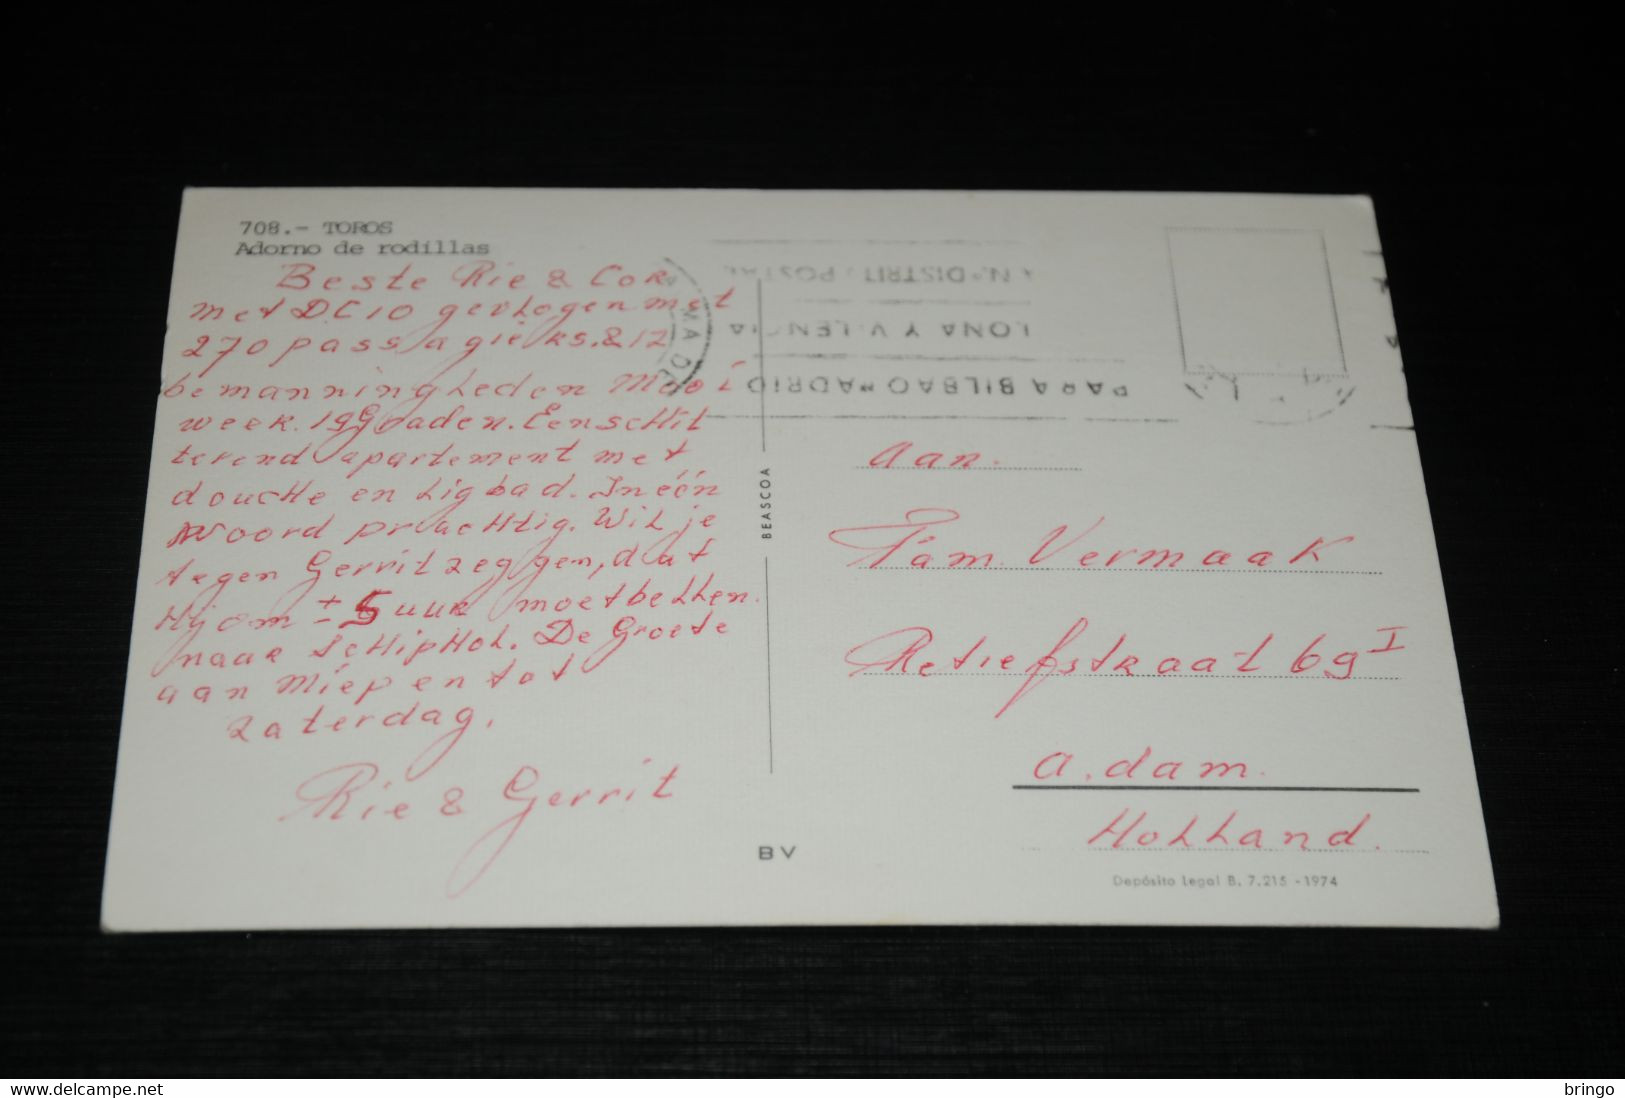 708.- TOROS
Adorno de rodillas
Beste Rie & Cor
met DC10 gevlogen met
270 passagiers. & 12
bemanningsleden Mooi
week. 19 Graden. Een schit
terend apartement met
douche en ligbad. In één
woord prachtig. Wil je
tegen Gerrit zeggen, dat
Hij om ± 5 uur moet bellen.
naar Schiphol. De Groete
aan Miep en tot
zaterdag.
Rie & Gerrit
BEASCOA
BV
Nº DISTRIT POSTAL
LONA Y V LENCIA
PARA BILBAO MADRID
MA DE
aan.
Fam. Vermaak
Retiefstraat 69 I
A.dam.
Holland.
Depósito Legal B. 7.215 - 1974
www.delcampe.net
bringo